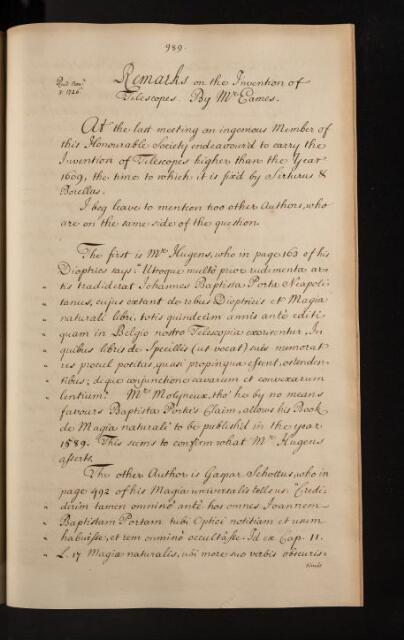 989.
Read Nov.r
3. 1726.
Remarks on the Invention of
Telescopes. By Mr Eames.
At the last meeting an ingenious Member of
this Honourable Society endeavour'd to carry the
Invention of Telescopes higher than the Year
1609, the time to which it is fix'd by Sirturus &
Borellus.
I beg leave to mention two other Authors, who
are on the same side of the question.
The first is Mr Hugens, who in page 163 of his
Dioptrics says: "Utroque multò prior rudimenta ar-
" tis tradiderat Johannes Baptista Porta Neapoli-
" tanus, cujus extant de rebus Dioptricis et Magia
" naturali libri, totis quindecim annis antè editi
" quam in Belgio nostro Telescopia exorirentur. In
" quibus libris de Specillis (ut vocat) suis memorat
" res procul positas, quasi propinquæ essent, ostenden-
" tibus; deque conjunctione cavarum et convexarum
" lentium." Mr Molyneux, tho' he by no means
favours Baptista Porta's Claim, allows his Book
de Magia naturali to be publish'd in the year
1589. This seems to confirm what Mr Hugens
asserts.
The other Author is Gaspar Schottus, who in
page 492 of his Magia universalis tells us: "Credi-
" derim tamen omninò antè hos omnes Joannem
" Baptistam Portam tubi Optici notitiam et usum
" habuisse, et rem omninò occultâsse. Id ex Cap. 11.
" L. 17 Magiæ naturalis, ubi more suo verbis obscuris-
simis